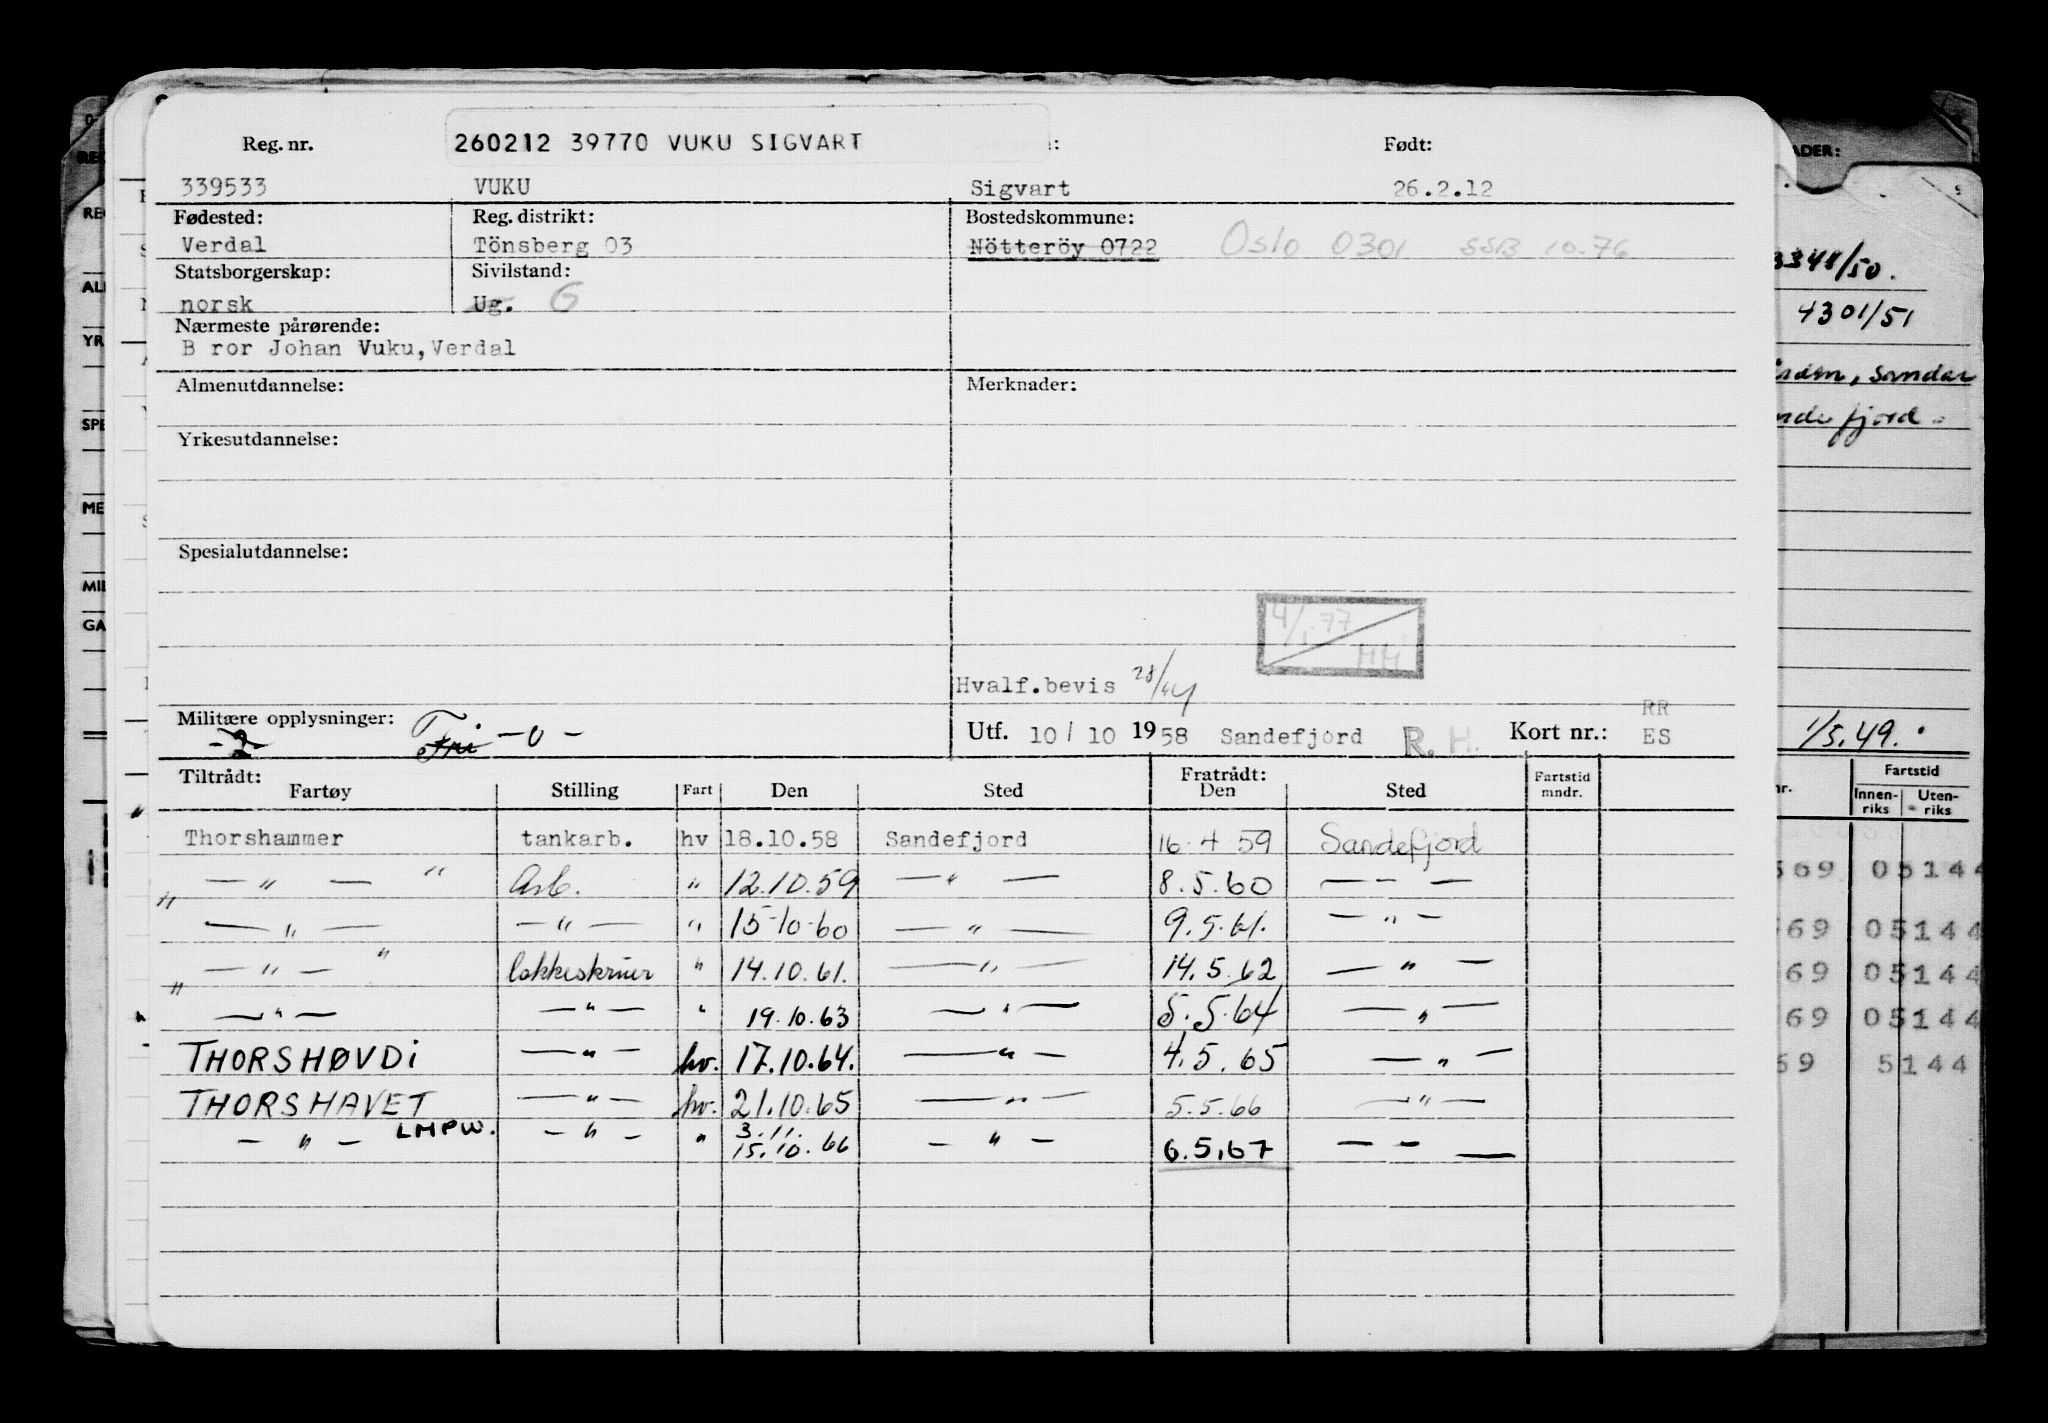 260212 39770 VUKU SIGVART
Reg. nr. Født:
339533 VUKU Sigvart 26.2.12
Fødested: Reg. distrikt: Bostedskommune:
Verdal Tönsberg 03 Nötteröy 0722 Oslo 0301 SSB 10-76
Statsborgerskap: Sivilstand:
norsk Ug. G
Nærmeste pårørende:
B ror Johan Vuku, Verdal
Almenutdannelse: Merknader:
Yrkesutdannelse:
Spesialutdannelse:
4/1-77
HH
Hvalf.bevis
Militære opplysninger: Fri - 0 -
Utf. 10/ 10 1958 Sandefjord R. H. Kort nr.: RR
ES
Tiltrådt: Fratrådt:
Fartøy Stilling Fart Den Sted Den Sted Fartstid mndr.
Thorshammer tankarb. hv 18.10.58 Sandefjord 16-4-59 Sandefjord
— " — " Arb. " 12.10.59 — " — 8.5.60 — — —
— " — — " — " 15-10-60 — " — 9.5.61. — " —
— " — " " 14.10.61. — " — 14.5.62 — " —
— " — — " — " 19.10.63 — " — 5.5.64 — " —
THORSHØVDI — " — hv. 17.10.64. — " — 4.5.65 — " —
THORSHAVET — " — hv. 21.10.65 — " — 5.5.66 — " —
— " — LMPW. — " — " 3.11.
15.10.66 — " — 6.5.67 — — —
ADER:
3348/50.
4301/51
, Sandar
1/5.49.
Fartstid
Innen-riks Uten-riks
569 05144
569 05144
69 05144
69 05144
69 5144